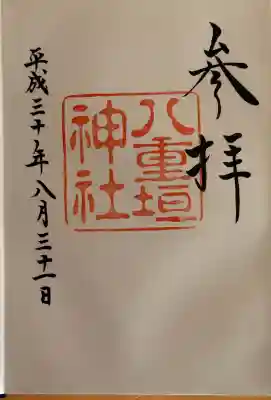 参拝
八重垣
神社
平成三十年八月三十一日